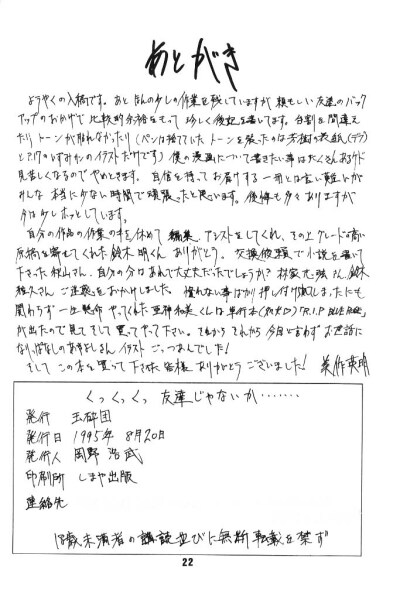 あとがき
ようやくの入稿です。あと ほんの少しの作業を残していますが 頼もしい友達のバック
アップのおかげで 比較的余裕をもって 珍しく後記を書いてます。台割を間違え
たり トーンが貼れなかったり(バンは捨てていた トーンを貼ったのは 表紙(デラ)
とアワのいずみサンのイラストだけです) 僕の漫画について書きたい事はたくさんあるけど
見苦しくなるのでやめときます。自信を持ってお届けする一冊とは言い難いが
みんな 本当に少ない時間で頑張ったと思います。後悔も多々ありますが
今は少しホッとしています。
自分の作品の作業の手を休めて 編集、アシストをしてくれ、その上 グレードの高い
原稿を寄せてくれた 鈴木 明くん ありがとう。交換依頼で小説を書いて
下さった 村山さん、自分の分はあれで大丈夫だったでしょうか? 林家 さん、鈴木
さん ご迷惑をおかけしました。慣れない事ばかり押し付けてしまったにも
関わらず 一生懸命 やってくれた 亜神和美くんは 単行本「R.I.P BLUE ROSE」
が出たので見てそして買ってやって下さい。それから それから 今回と言わず お世話に
なりっぱなしの あきよしさん イラスト ごっつぁんでした!
そして この本を買って下さった 皆様 ありがとうございました! 美作英明
くっくっくっ 友達じゃないか‥‥‥
発行 玉砕団
発行日 1995年 8月20日
発行人 岡野 浩武
印刷所 しまや出版
連絡先
18歳未満者の購読並びに無断転載を禁ず
22